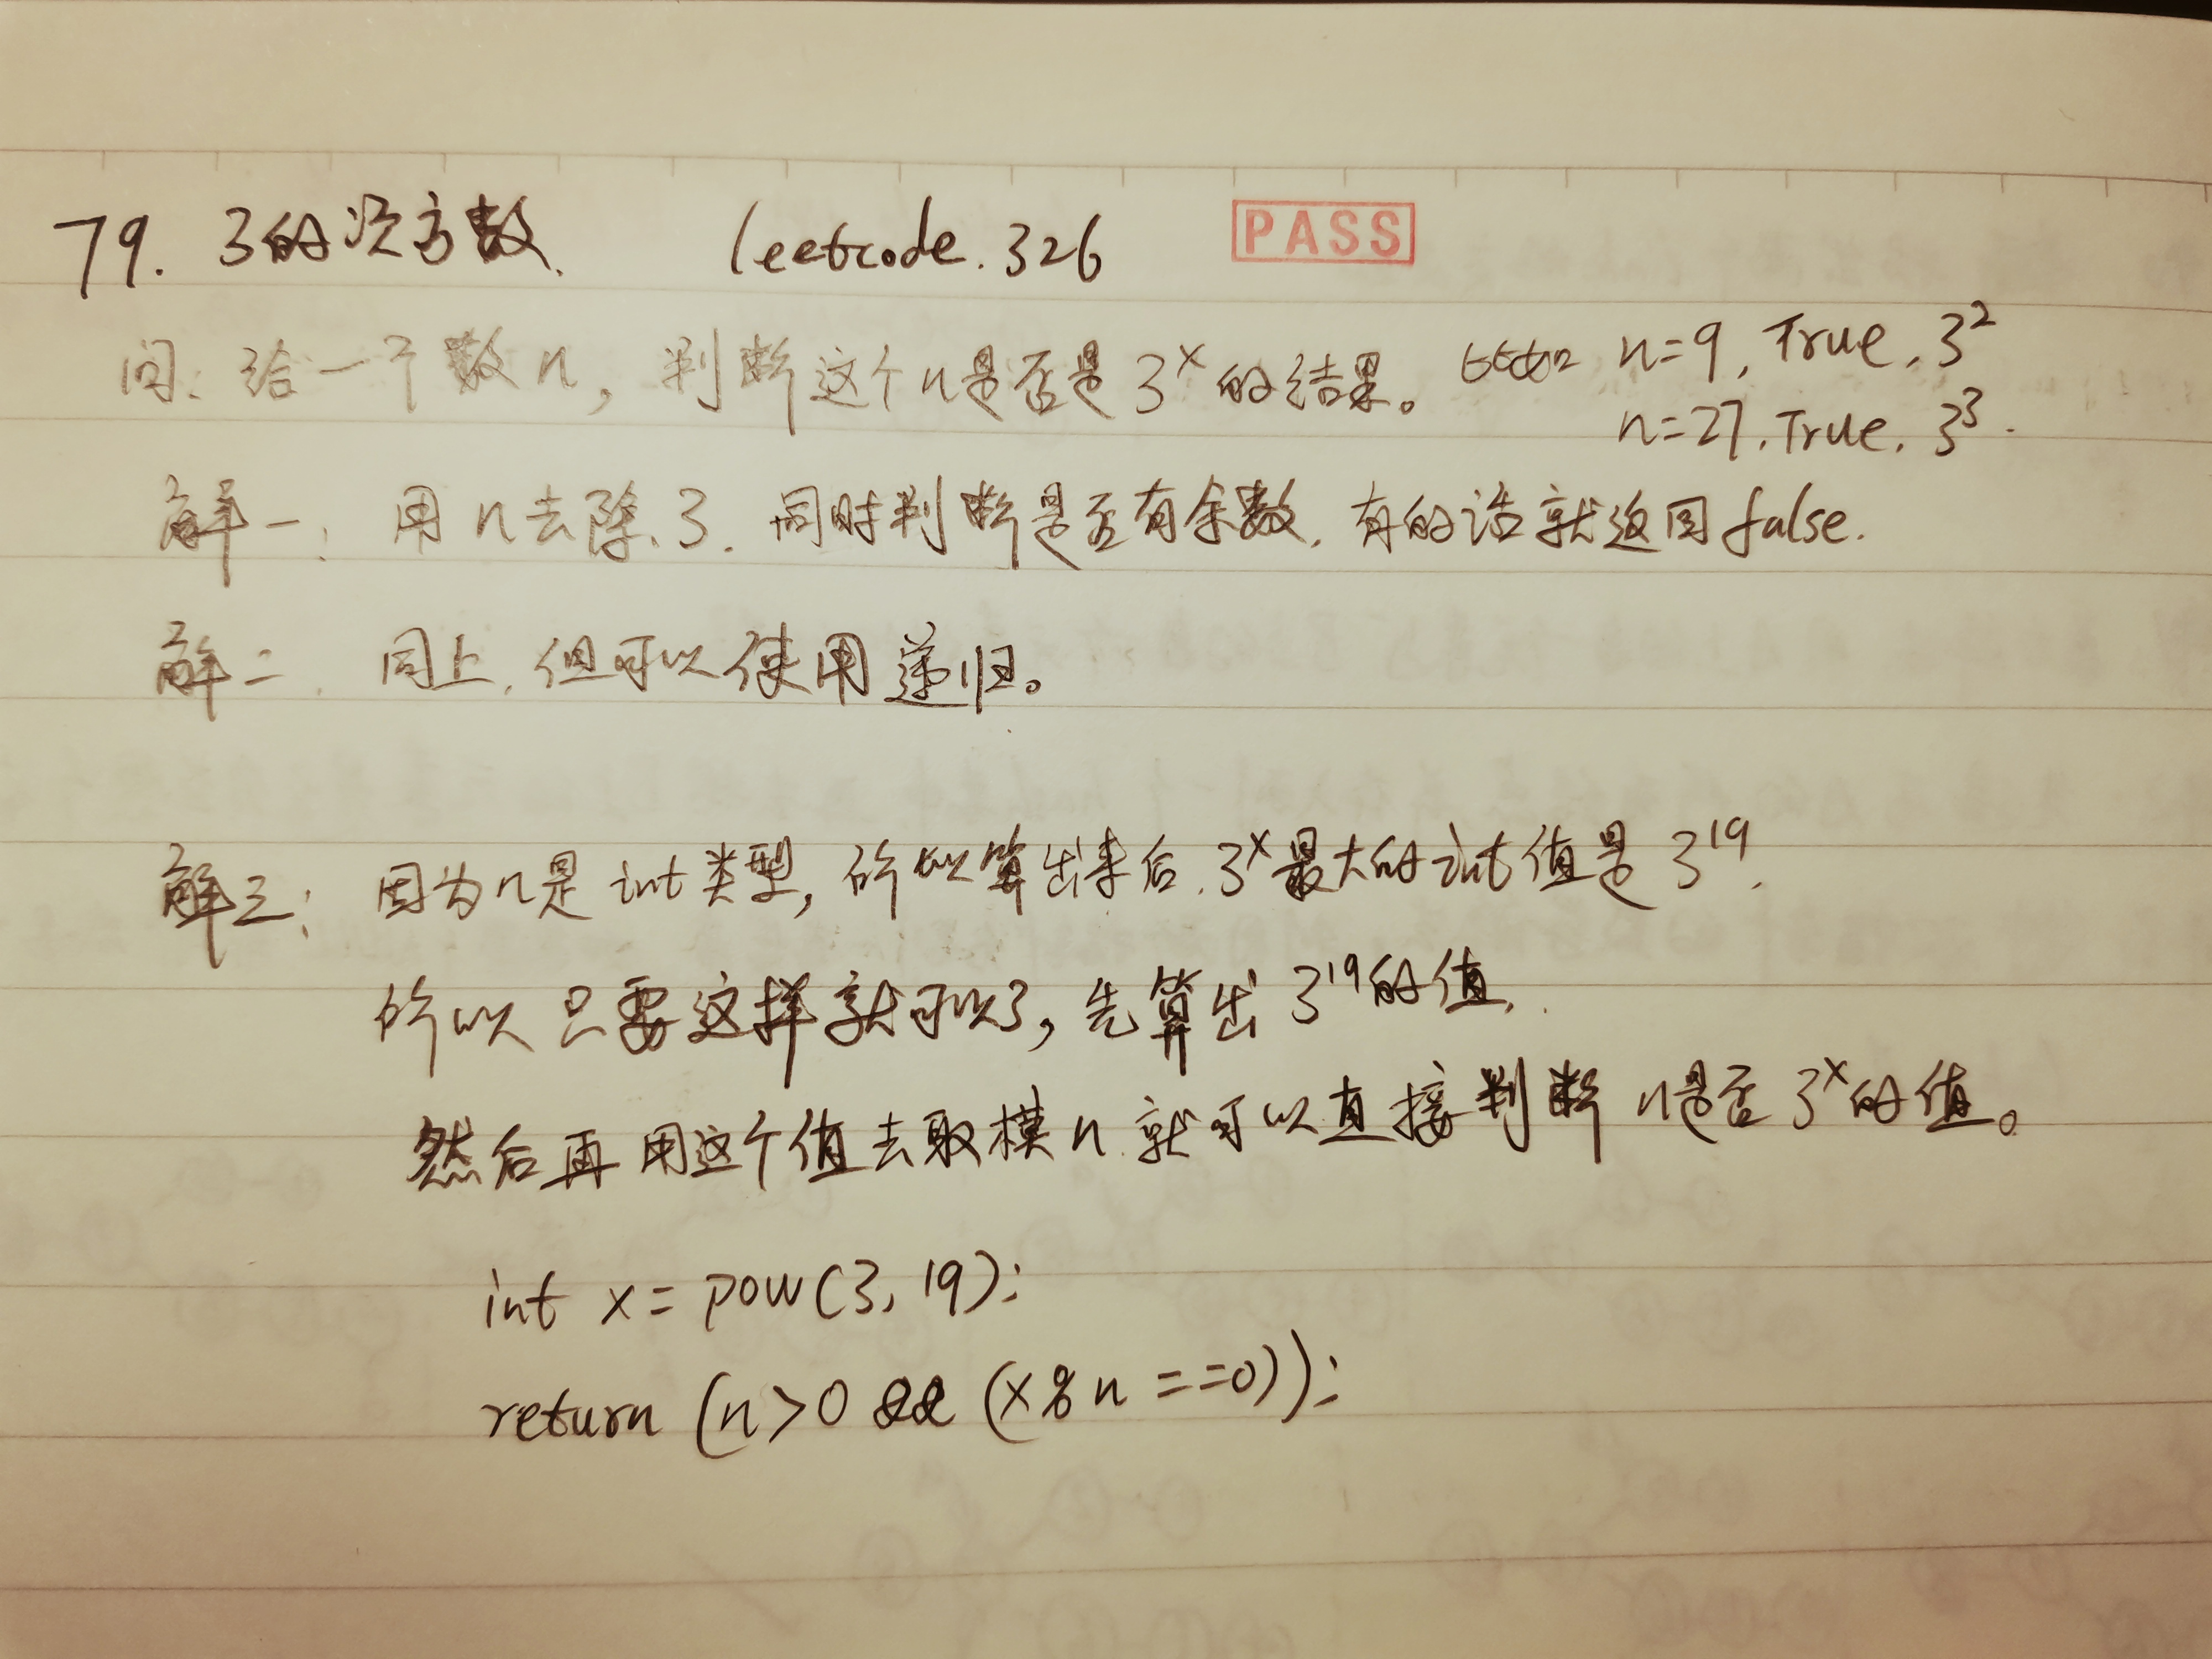 79. 3的次方数. leetcode.326 PASS
问: 给一个数n, 判断这个n是否是3^x的结果。 比如 n=9, True. 3^2
n=27, True. 3^3.
解一: 用n去除3. 同时判断是否有余数. 有的话就返回false.
解二. 同上. 但可以使用递归。
解三: 因为n是int类型, 所以算出来后. 3^x最大的int值是3^19.
所以只要这样就可以了, 先算出3^19的值.
然后再用这个值去取模n.就可以直接判断n是否3^x的值。
int x = pow(3, 19);
return (n>0 && (x%n ==0));